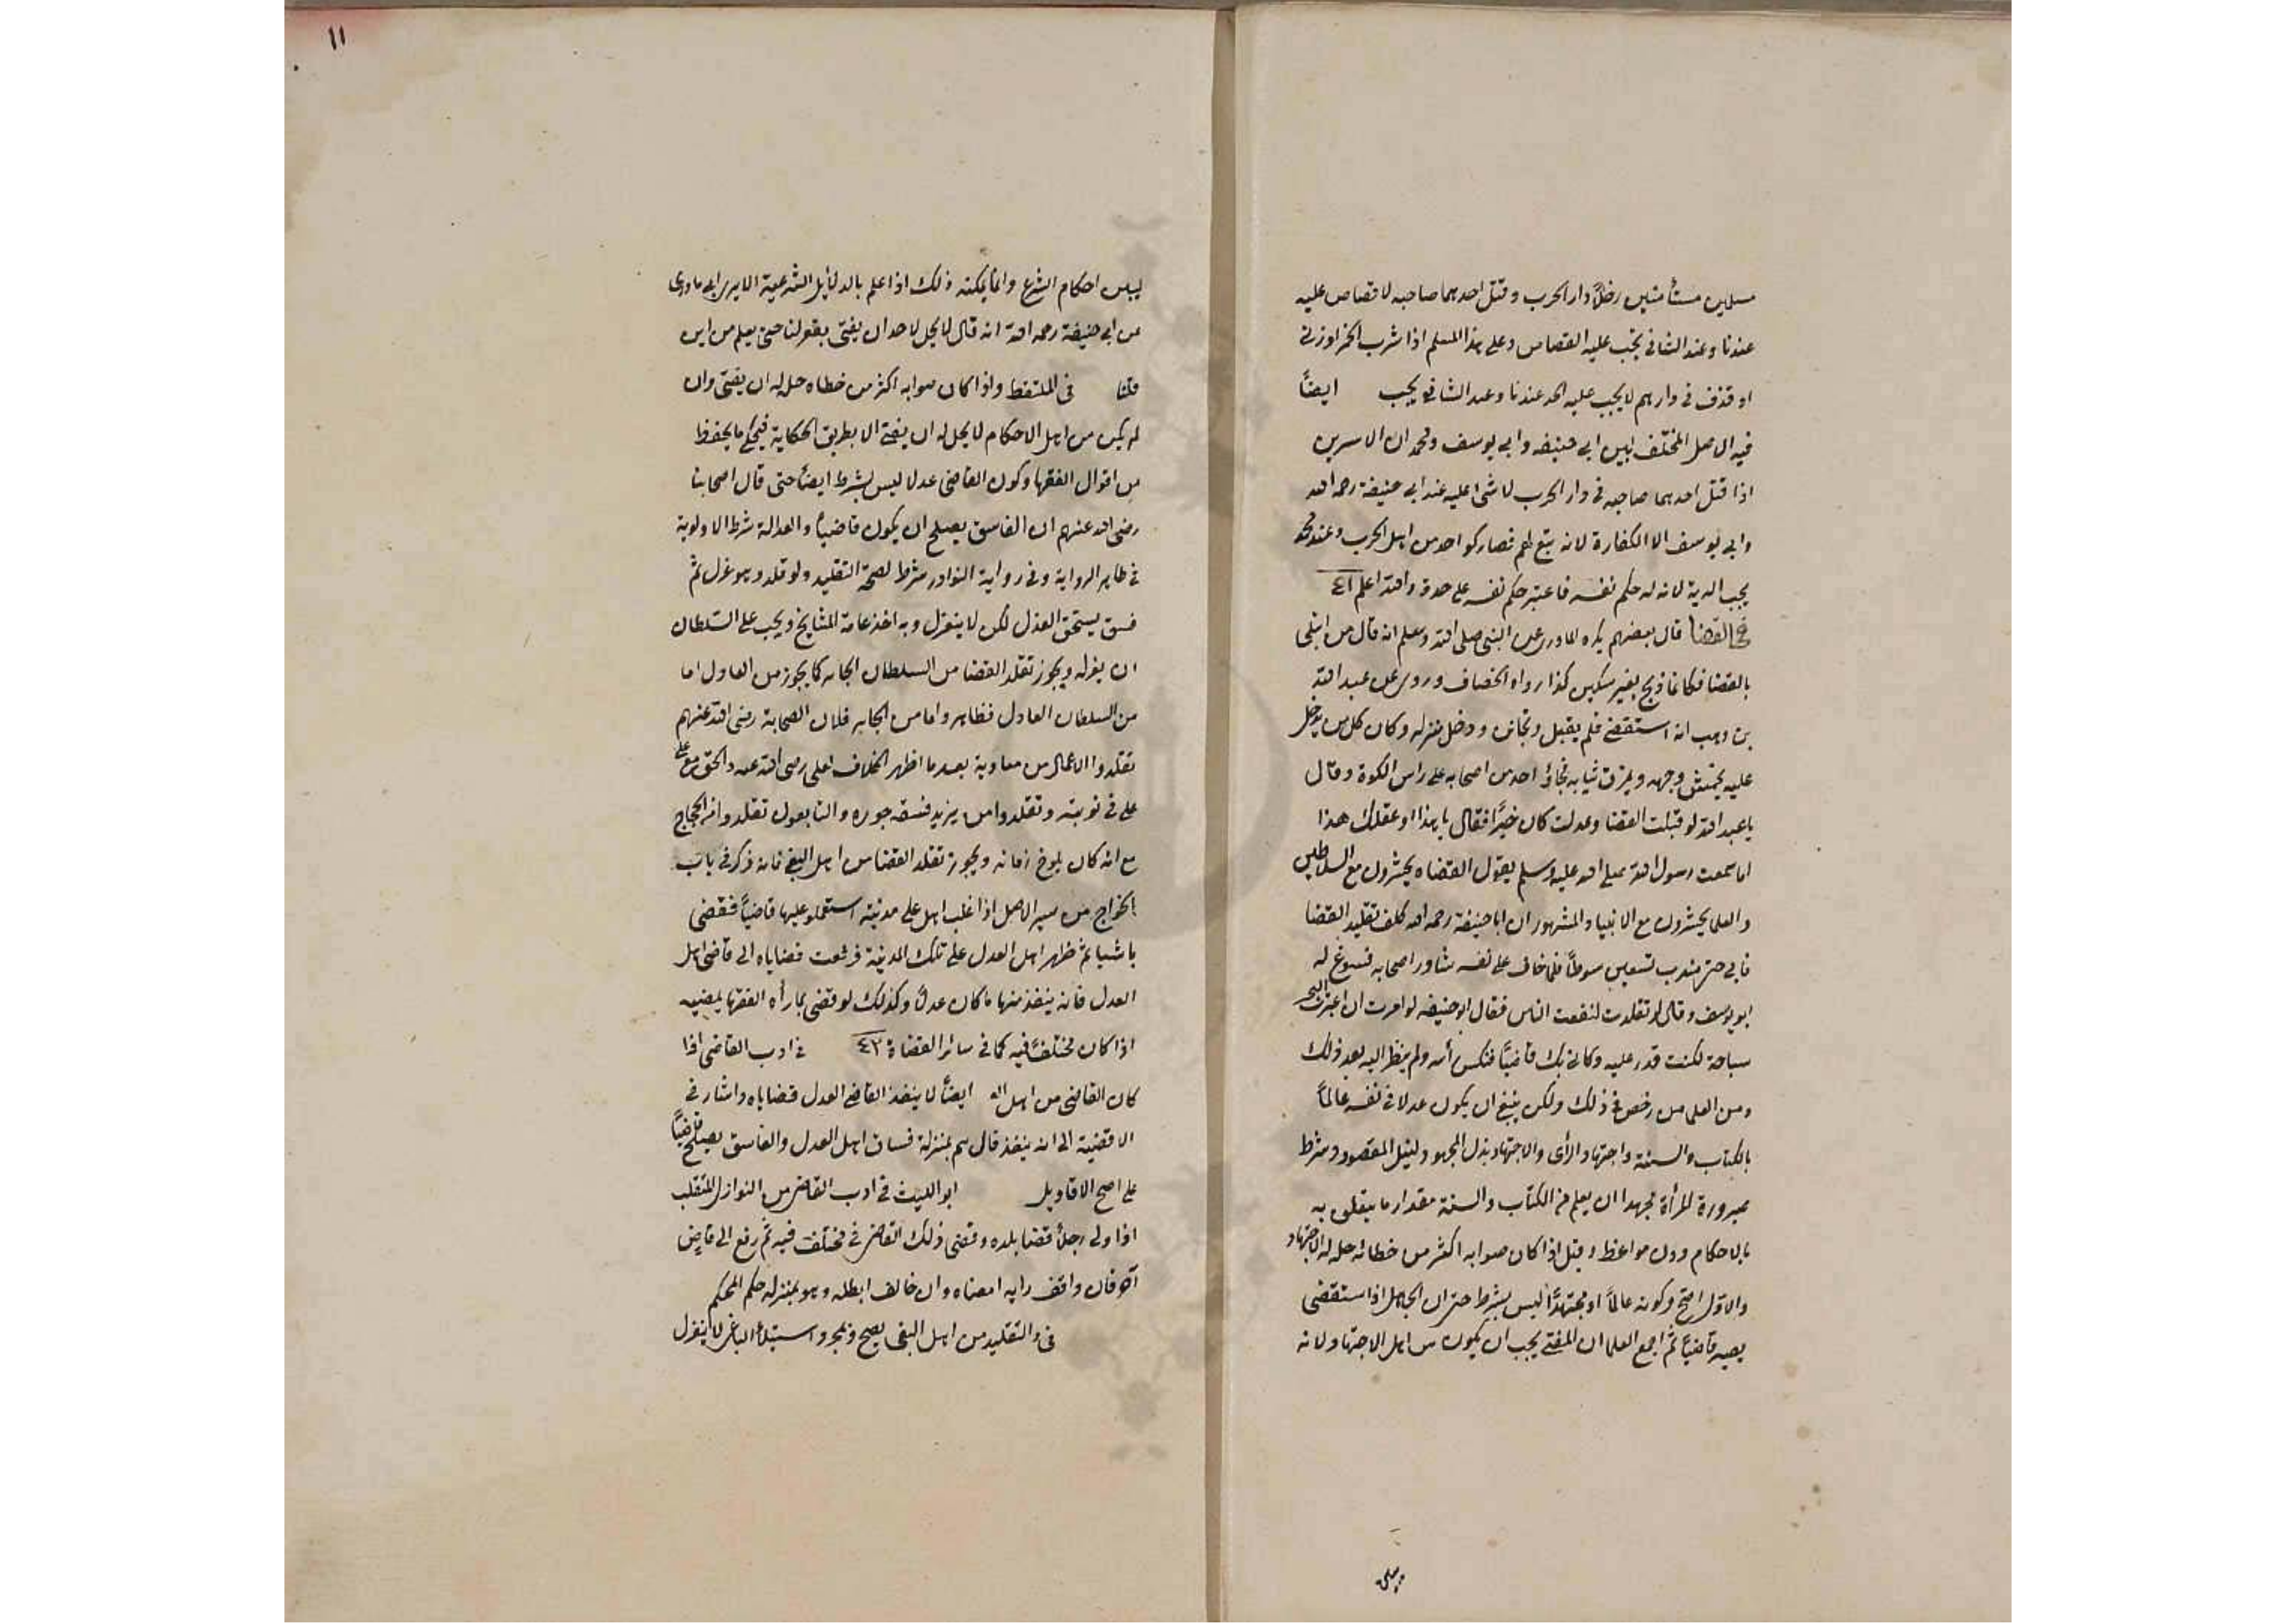 مسلمين مستأمنين دخلا دار الحرب وقتل احدهما صاحبه لا قصاص عليه
عندنا وعند الشافى يجب عليه القصاص وعلى هذا المسلم اذا شرب الخمر او زنى
او قذف فى دارهم لا يجب عليه الحد عندنا وعند الشافى يجب ايضاً
فيه الاصل المختلف بين ابى حنيفه وابى يوسف ومحمد ان الاسرين
اذا قتل احدهما صاحبه فى دار الحرب لا شئ عليه عند ابى حنيفة رحمه الله
وابى يوسف الا الكفارة لانه تبع لهم فصار كواحد من اهل الحرب وعند محمد
يجب الدية لانه له حكم نفسه فاعتبر حكم نفسه على حدة والله اعلم ٤١
فى القضا قال بعضهم يكره لما روى عن النبى صلى الله وسلم انه قال من ابتلى
بالقضا فكانما ذبح بغير سكين كذا رواه الخصاف وروى عن عبد الله
بن وهب انه استقضى فلم يقبل وتجانن ودخل منزله وكان كل من يدخل
عليه يخمش وجهه ويمزق ثيابه فجاؤ احد من اصحابه على راس الكوة وقال
يا عبد الله لو قبلت القضا وعدلت كان خيراً فقال يا هذا او عقلك هذا
اما سمعت رسول الله صلى الله عليه وسلم يقول القضاه يحشرون مع السلاطين
والعلما يحشرون مع الانبيا والمشهور ان ابا حنيفة رحمه الله كلف تقليد القضا
فابى حتى ضرب تسعين سوطاً فلما خاف على نفسه شاور اصحابه فسوغ له
ابو يوسف وقال لو تقلدت لنفعت الناس فقال ابو حنيفه لو امرت ان اعبر البحر
سباحة لكنت قدر عليه وكانى بك قاضياً فنكس رأسه ولم ينظر اليه بعد ذلك
ومن العلما من رخص فى ذلك ولكن ينبغى ان يكون عدلا فى نفسه عالماً
بالكتاب والسنة واجتهاد الرأى والاجتهاد بذل المجهود لنيل المقصود وشرط
صيرورة المرأة مجتهدا ان يعلم من الكتاب والسنة مقدار ما يتعلق به
بالاحكام ودون مواعظ وقيل اذا كان صوابه اكثر من خطائه حل له الاجتهاد
والاول اصح وكونه عالماً او مجتهداً ليس بشرط حتى ان الجاهل اذا استقضى
يصير قاضياً ثم اجمع العلما ان المفتى يجب ان يكون من اهل الاجتهاد لانه
١١
ليبين احكام الشرع وانما يمكنه ذلك اذا علم بالدلائل الشرعية الا يرى الى ما روى
عن ابى حنيفة رحمه الله انه قال لا يحل لاحد ان يفتى بقولنا حتى يعلم من اين
قلنا فى الملتقط واذا كان صوابه اكثر من خطاه حل له ان يفتى وان
لم يكن من اهل الاحكام لا يحل له ان يفتى الا بطريق الحكاية فيحكى ما يحفظ
من اقوال الفقها وكون القاضى عدلا ليس بشرط ايضاً حتى قال اصحابنا
رضى الله عنهم ان الفاسق يصلح ان يكون قاضياً والعدالة شرط الاولوية
فى ظاهر الرواية وفى رواية النوادر شرط لصحة التقليد ولو قلد وهو عدل ثم
فسق يستحق العزل لكن لا ينعزل وبه اخذ عامة المشايخ ويجب على السلطان
ان يعزله ويجوز تقلد القضا من السلطان الجابر كما يجوز من العادل اما
من السلطان العادل فظاهر واما من الجابر فلان الصحابة رضى الله عنهم
تقلدوا الاعمال من معاوية بعد ما اظهر الخلاف لعلى رضى الله عنه والحق مع على
على فى نوبته وتقلدوا من يزيد فسقه جوره والتابعون تقلدوا من الحجاج
مع انه كان زمانه ويجوز تقلد القضا من اهل البغى فانه ذكر فى باب
الخوارج من سير الاصل اذا غلب اهل على مدينة استعملو عليها قاضياً فقضى
باشيا ثم ظهر اهل العدل على تلك المدينة فرفعت قضاياه الى قاضى اهل
العدل فانه ينفذ منها ما كان عدلاً وكذلك لو قضى بما رأه الفقها يمضيه
اذا كان مختلفاً فيه كما فى سائر القضاة ٤٢ فى ادب القاضى اذا
كان القاضى من اهل ايضاً لا ينفذ القاضى العدل قضاياه واشار فى
الاقضية الى انه ينفذ قال هم بمنزلة فساق اهل العدل والفاسق يصلح قاضياً
على اصح الاقاويل ابو الليث فى ادب القاضى من النوازل المتقلب
اذا ولى رجلاً قضا بلده وقضى ذلك القاضى فى مختلف فيه ثم رفع الى قاض
آخر فان وافق رايه امضاه وان خالف ابطله وهو بمنزلة حكم المحكم
فى والتقليد من اهل البغى يصح وبمجرد استيلأ الباغى لا ينعزل